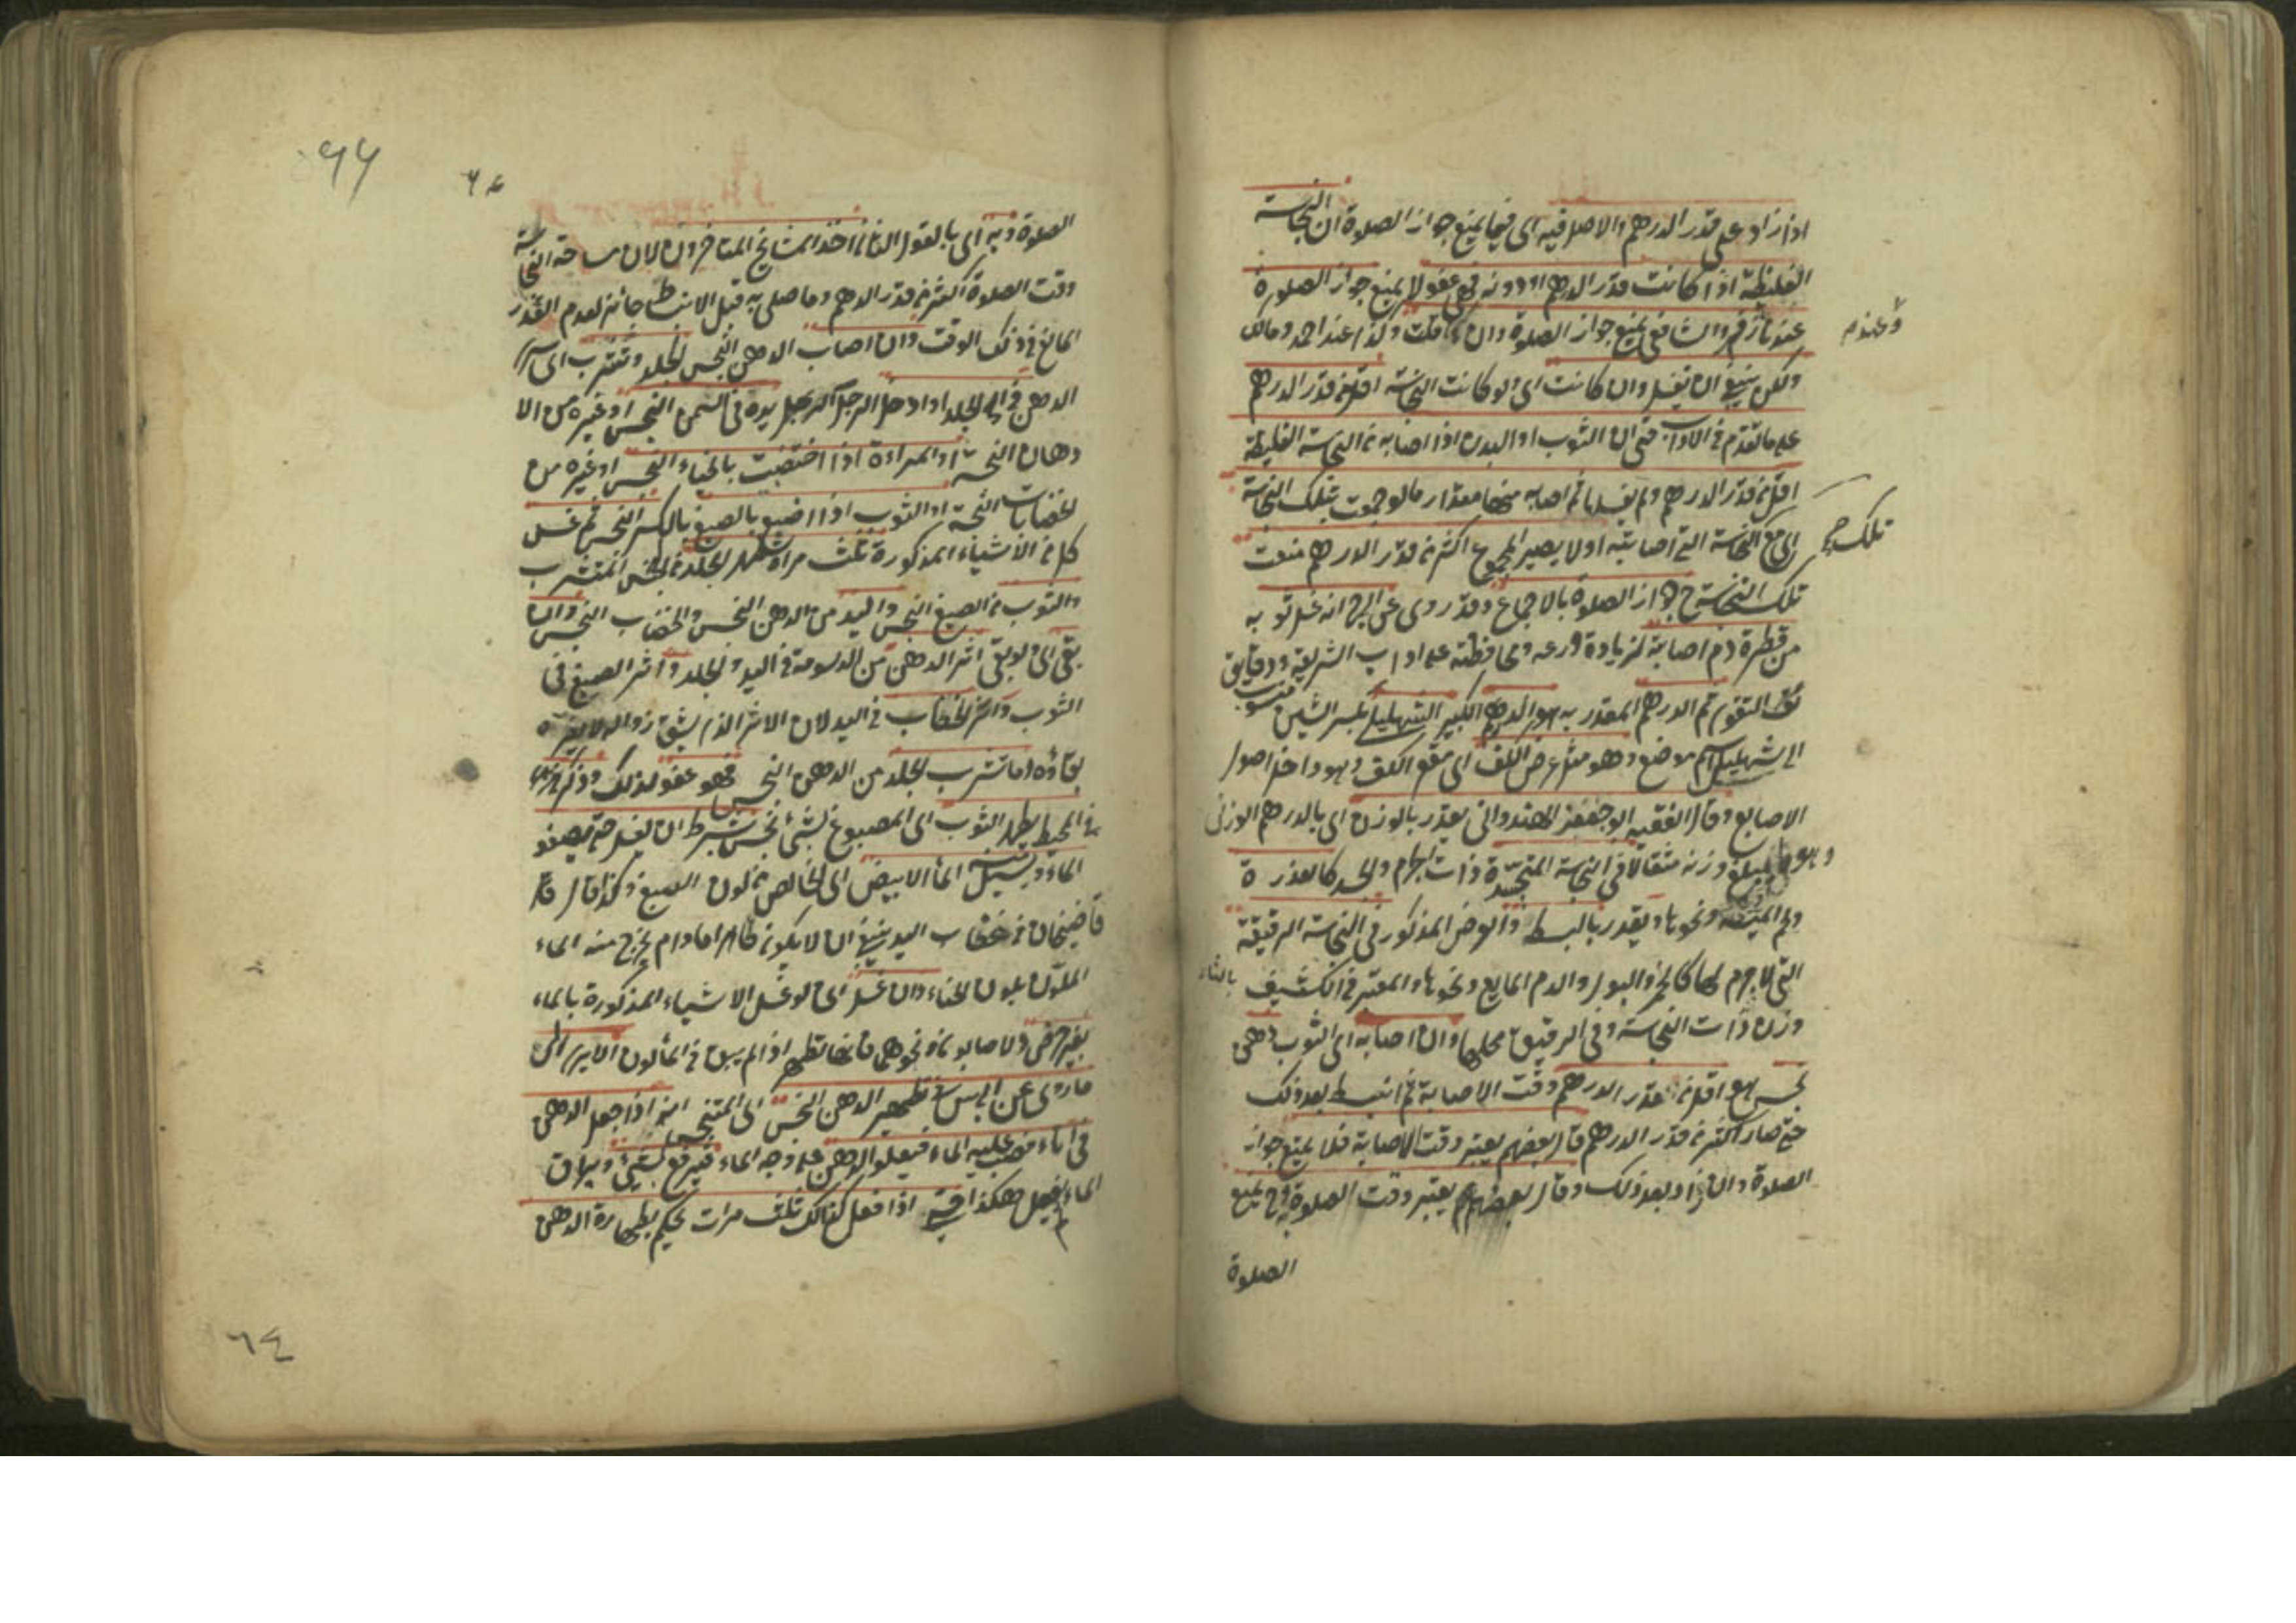 اذا زاد على قدر الدرهم والاصل فيه اى فيما يمنع جواز الصلوة ان النجاسة
الغليظة اذا كانت قدر الدرهم او دونه فهى عفو لا يمنع جواز الصلوة
عندنا وعند زفر والشافعى يمنع جواز الصلوة وان قلت وكذا عند احمد ومالك
ولكن ينبغى ان يغسل وان كانت اى ولو كانت النجاسة اقل من قدر الدرهم
على ما تقدم فى الاداب حتى ان الثوب او البدن اذا اصابه من النجاسة الغليظة
اقل من قدر الدرهم ولم يغسلها ثم اصابه منها مقدار ما لو جمعت بتلك النجاسة
اى مع النجاسة التى اصابته اولا يصير المجموع اكثر من قدر الدرهم منعت
تلك
تلك النجاسة ح جواز الصلوة بالاجماع وقد روى عن ابى ح انه غسل ثوبه
من قطرة دم اصابته لزيادة ورعه ومحافظته على اداب الشريعة ودقايق
التقوى ثم الدرهم المقدر به هو الدرهم الكبير الشهليلى بكسر الشين منسوب
الى شهليل اسم موضع وهو مثل عرض الكف اى مقعر الكف وهو داخل اصول
الاصابع وقال الفقيه ابو جعفر الهندوانى يقدر بالوزن اى بالدرهم الوزنى
وهو ما يبلغ وزنه مثقالا فى النجاسة المتجسدة ذات الجرم والجسد كالعذرة
ولحم الميتة ونحوها ويقدر بالبسط والعرض المذكور فى النجاسة الرقيقة
التى لا جرم لها كالخمر والبول والدم المايع ونحوها والمعتبر فى الكثيف بالثاء
وزن ذات النجاسة وفى الرقيق محلها وان اصابه اى الثوب دهن
نجس وهو اقل من قدر الدرهم وقت الاصابة ثم انبسط بعد ذلك
حتى صار اكثر من قدر الدرهم قال بعضهم يعتبر وقت الاصابة فلا يمنع جواز
الصلوة وان زاد بعد ذلك وقال بعضهم يعتبر وقت الصلوة فح يمنع
الصلوة
٦٤
الصلوة وبه اى بالقول الثانى اخذ المشايخ المتاخرون لان مساحة النجاسة
وقت الصلوة اكثر من قدر الدرهم وما صلى به قبل الانبساط جائز لعدم القدر
المانع فى ذلك الوقت وان اصاب الدهن النجس الجلد وتشرب اى سرى
الدهن فى الجلد او ادخل الرجل يده فى السمن النجس او غيره من الا
دهان النجسة او المراءة اذا اختضبت بالحناء النجس او غيره من
الخضابات النجسة او الثوب اذا اصبغ بالصبغ بالكسر النجس ثم غسل
كل من الاشياء المذكورة ثلث مرات طهر الجلد من النجس المتشرب
والثوب من الصبغ النجس واليد من الدهن النجس والخضاب النجس وان
بقى اى ولو بقى اثر الدهن من الدسومة فى اليد والجلد واثر الصبغ فى
الثوب واثر الخضاب فى اليد لان الاثر الذى يشق زواله لا يضره
بقاؤه وما تشرب الجلد من الدهن النجس فهو عفو لذلك وذكر
فى المحيط يطهر الثوب اى المصبوغ بشئ نجس بشرط ان يغسل حتى يصفو
الماء ويسيل الماء الابيض اى الخالص من لون الصبغ وكذا قال
قاضيخان فى خضاب اليد ينبغى ان لا يكون طاهرا ما دام يخرج منه الماء
الملون بلون الحناء وان غسل اى لو غسل الاشياء المذكورة بالماء
بغير حرض ولا صابون ونحوهما فانها تطهر اذا لم يبق فى الماء لون الاثر الى
ما روى عن ابى يوسف فى تطهير الدهن النجس اى المتنجس انه اذا جعل الدهن
فى اناء فصب عليه الماء فيعلو الدهن على وجه الماء فيرفع بشئ ويراق
الماء ثم يفعل هكذا حتى اذا فعل كذلك ثلث مرات يحكم بطهارة الدهن
٦٤